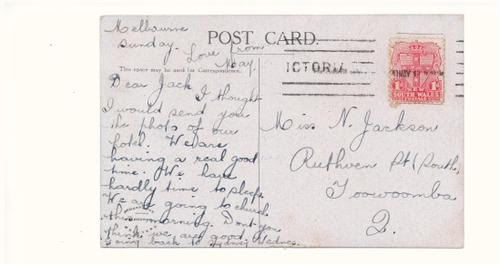 Melbourne
Sunday.
Love from
May.
POST CARD.
This space may be used for Correspondence.
Dear Jack
I thought
I would send you
the photo of our
hotel. We are
having a real good
time. We have
hardly time to sleep.
We are going to church
this morning. Dont you
think we are good.
Going back to Sydney Wednes.
ICTORIA
1d 1d
SOUTH WALES
Miss N. Jackson
Ruthven St (South)
Toowoomba
Q.